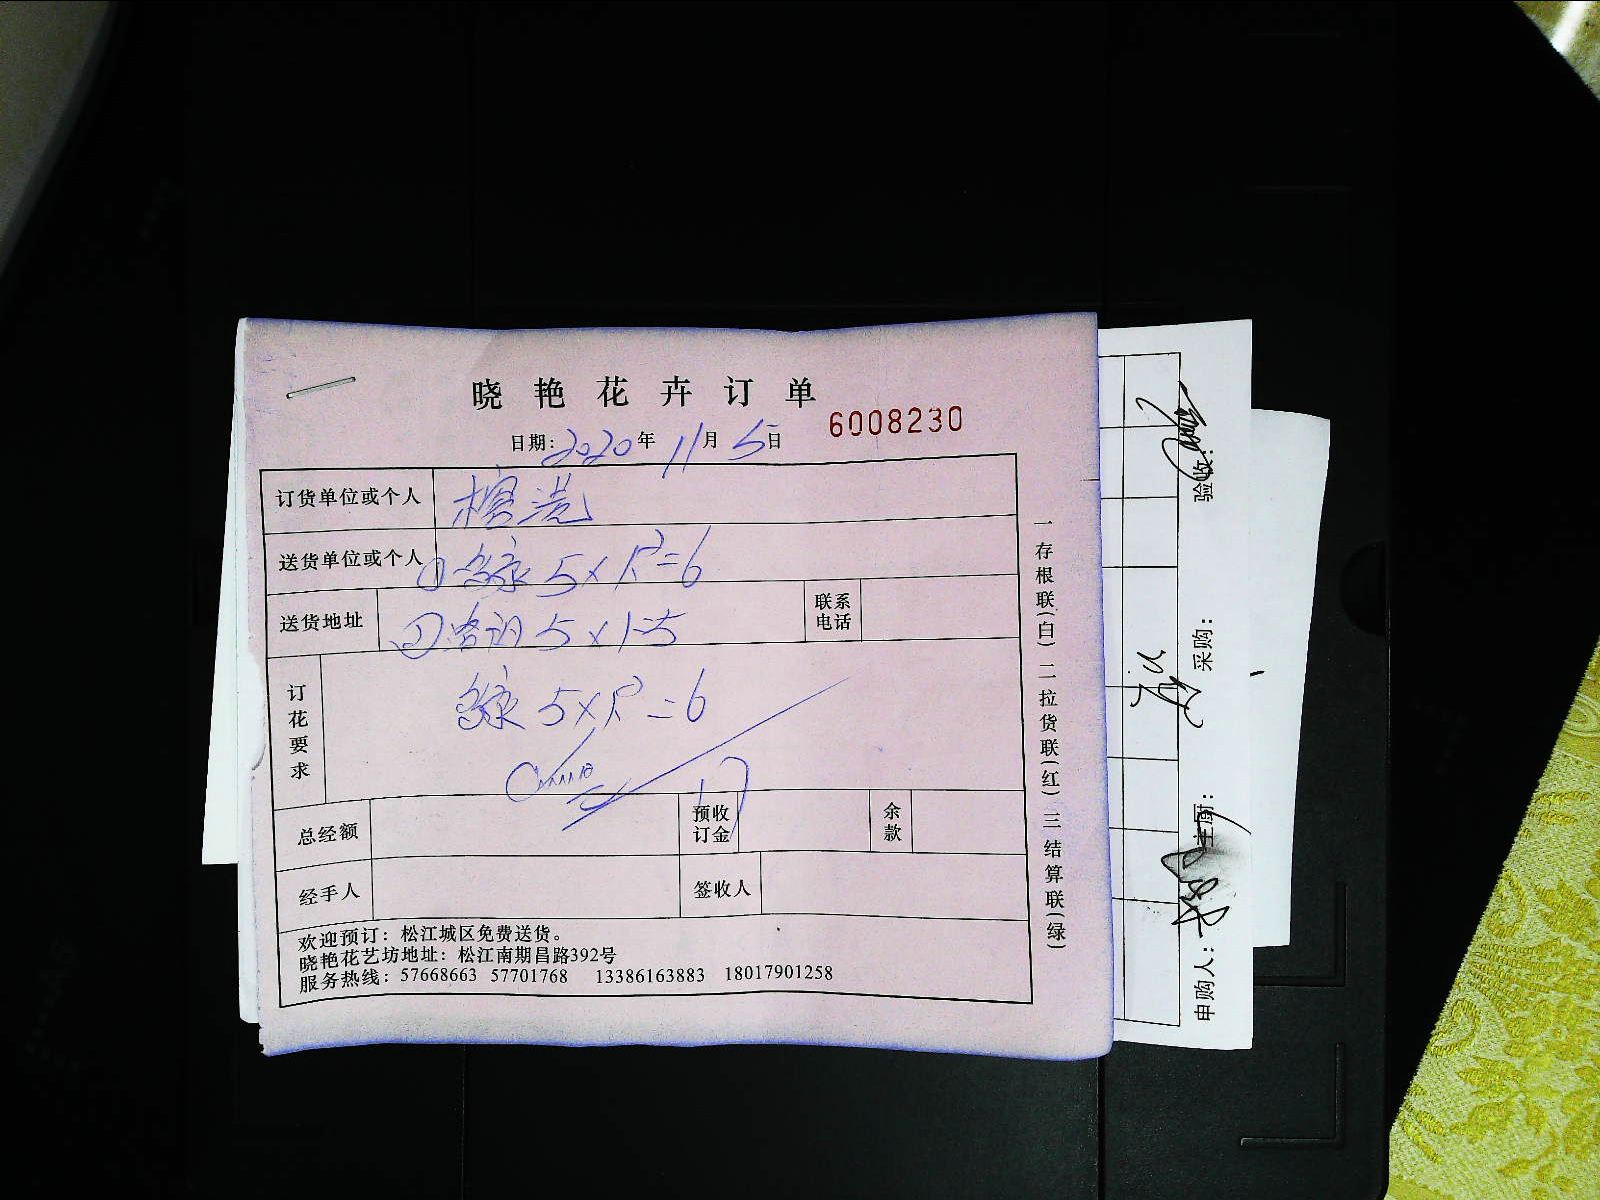 晓艳花卉订单
日期: 2020年 11月 5日 6008230
订货单位或个人
送货单位或个人 ① 5×1.2=6
送货地址 ② 5×1=5 联系电话
订花要求 5×1.2=6
17
总经额 预收订金 余款
经手人 签收人
欢迎预订: 松江城区免费送货。
晓艳花艺坊地址: 松江南期昌路392号
服务热线: 57668663 57701768 13386163883 18017901258
一存根联(白) 二拉货联(红) 三结算联(绿)
验收:
采购:
主厨:
申购人: